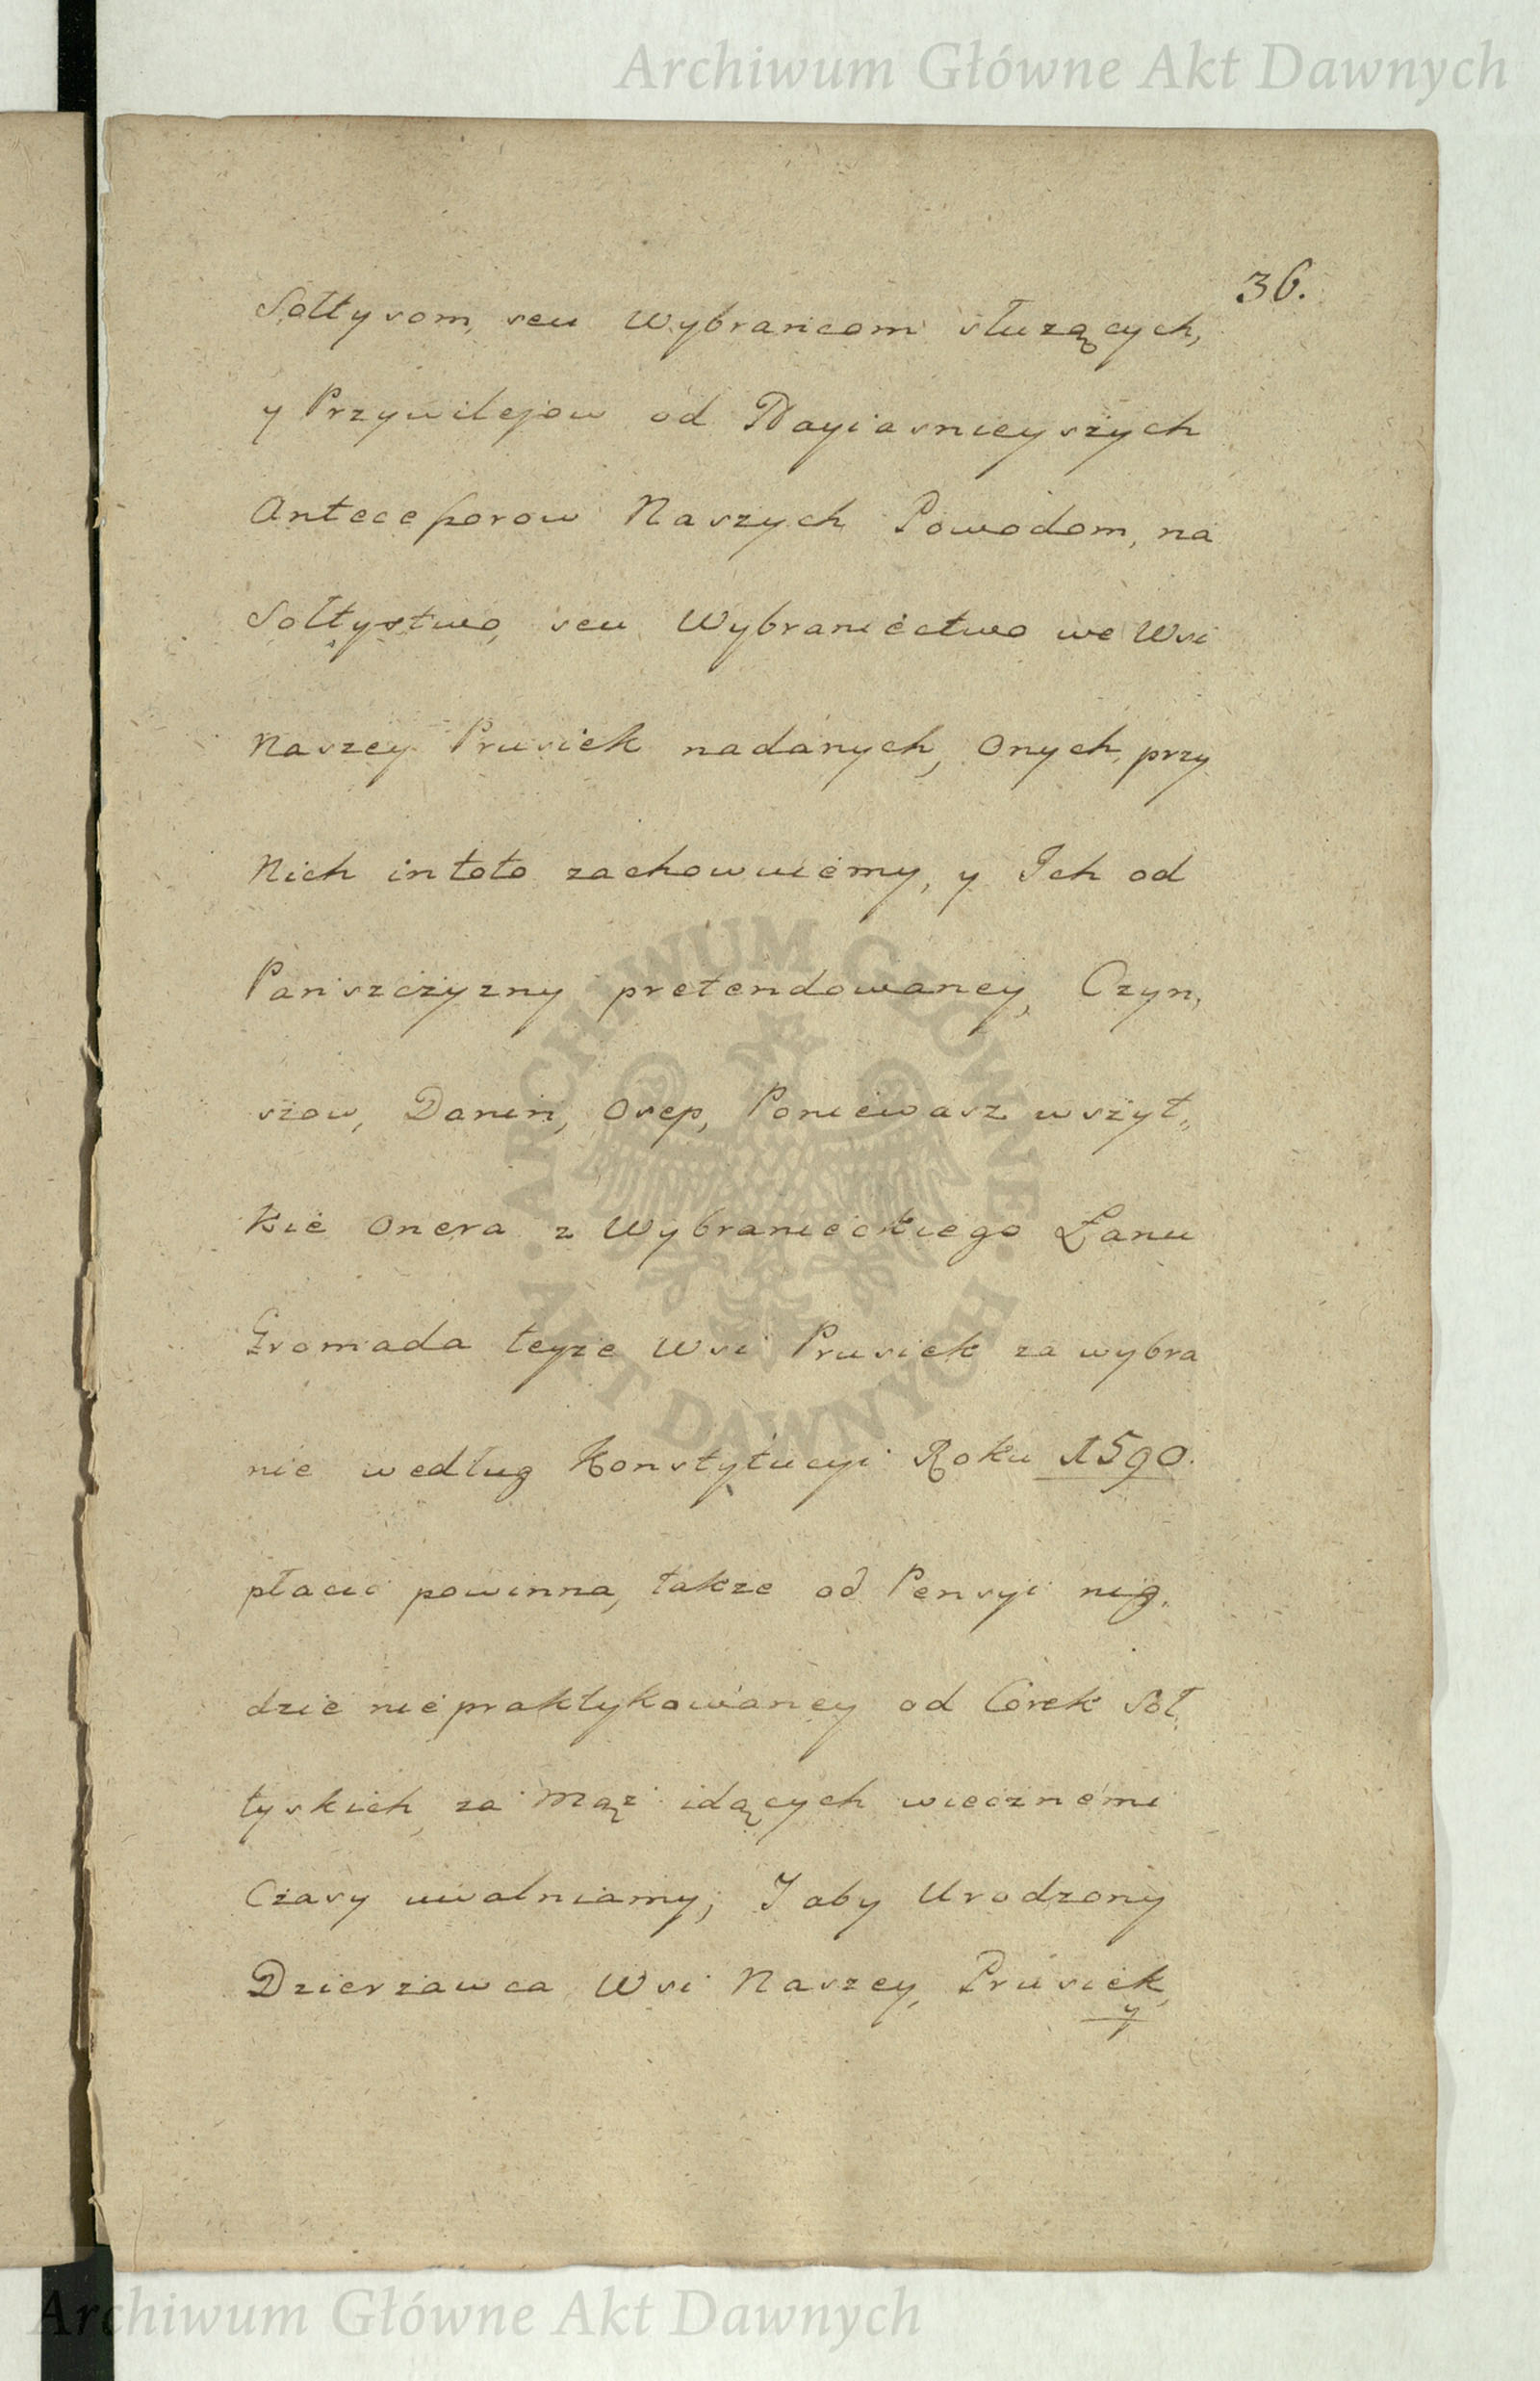 Archiwum Główne Akt Dawnych
36.
Sołtysom, seu Wybrancom słuzących,
y Przywilejow od Nayiasnieyszych
Antecessorow Naszych Powodom, na
Sołtystwo, seu Wybraniectwo we Wsi
Naszey Prusiek nadanych, Onych, przy
Nich in toto zachowuiemy, y Ich od
Panszczyzny pretendowaney, Czyn,
szow, Danin, Osep, Poniewasz wszyt„
kie Onera z Wybranieckiego Łanu
Gromada teyze Wsi Prusiek za wybra
nie według Konstytucyi Roku 1590.
płacic powinna, takze od Pensyi nig„
dzie niepraktykowaney od Corek Soł„
tyskich za Mąz idących wiecznemi
Czasy uwalniamy; I aby Urodzony
Dzierzawca Wsi Naszey, Prusiek,
y
ARCHIWUM GŁÓWNE · AKT DAWNYCH ·
Archiwum Główne Akt Dawnych